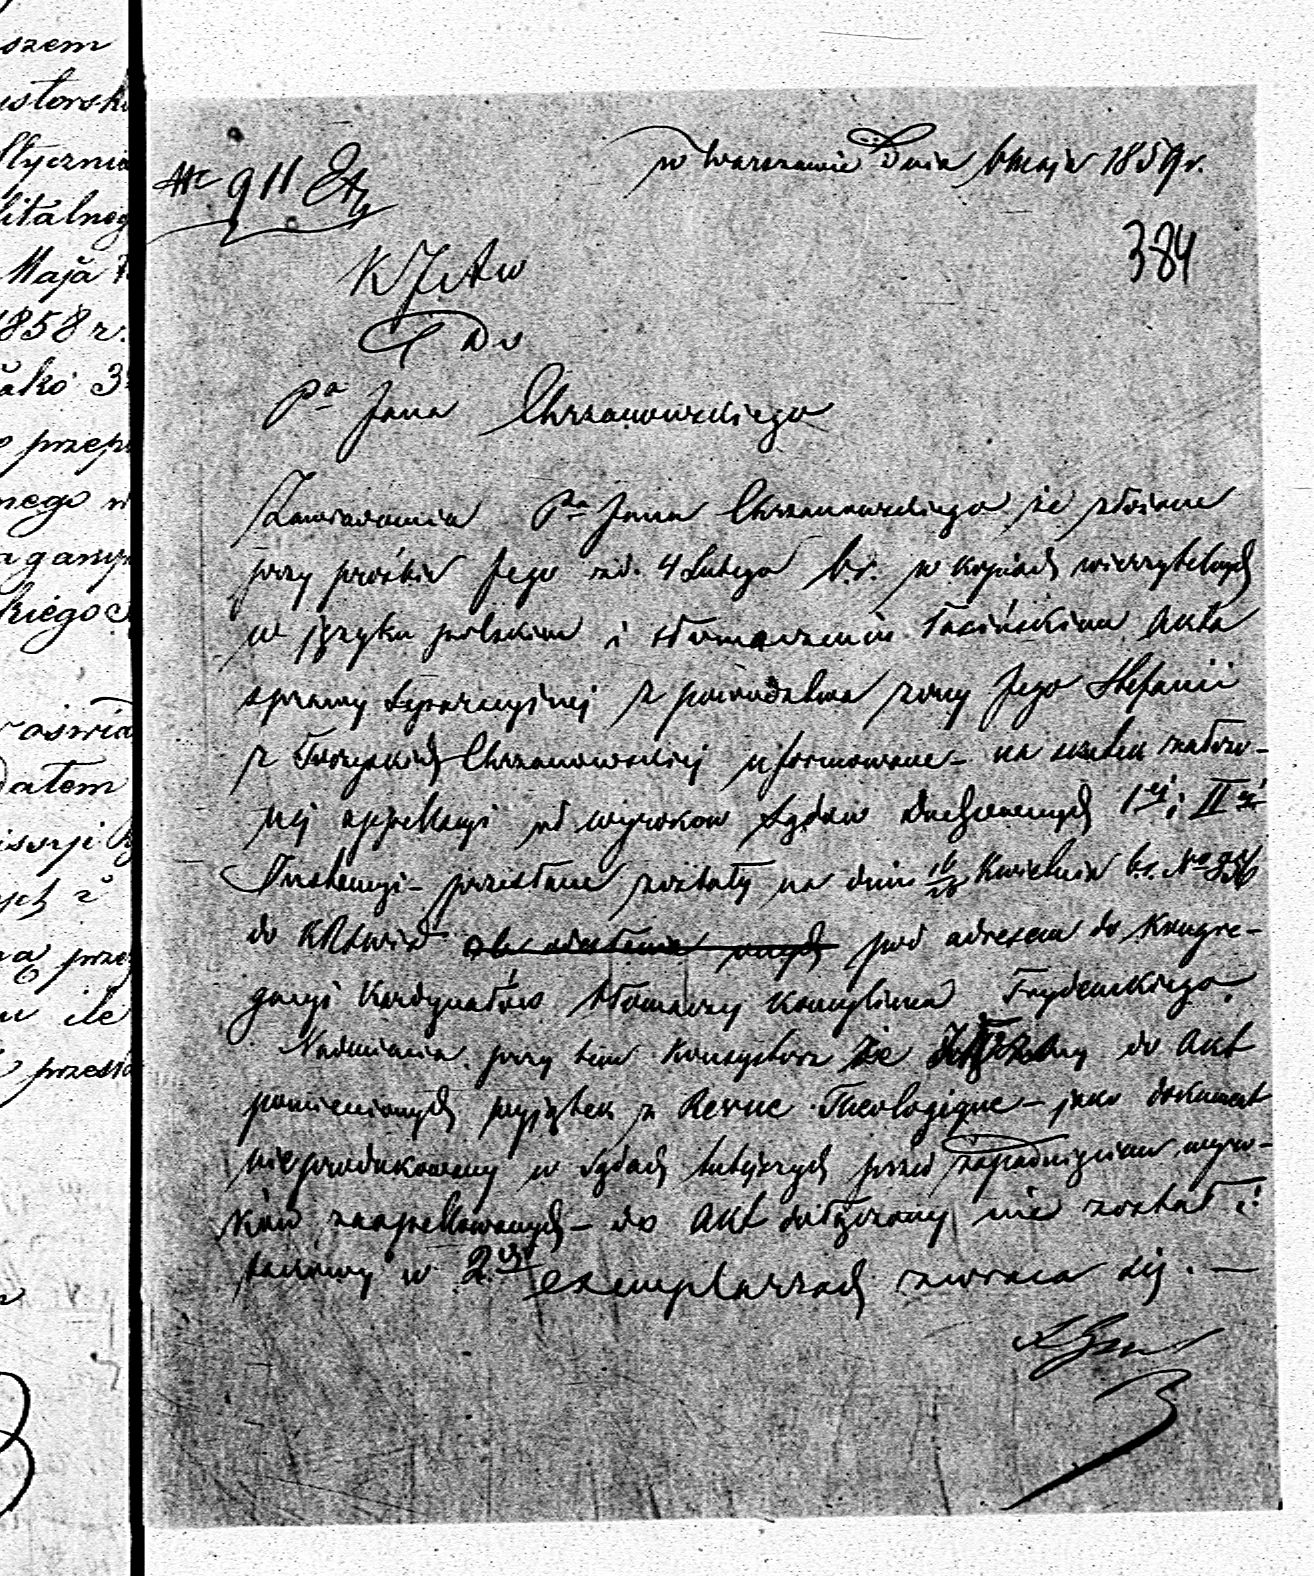 szem
ustorski
Stycznia
litalnego
Maja
1858 r.
jako 3
przep
nego w
agany
kiego
oświa
Datem
issyi
ych i
ną przez
ile
przesła
w Warszawie Dnia 6 Maja 1859 r.
№ 911
384
Do
Pa Jana Chrzanowskiego
Zawiadamia Pa Jana Chrzanowskiego że złożone
przy prośbie Jego 4 Lutego b.r. w kopiach wierzytelnych
w języku polskim i tłomaczeniu łacińskim Akta
sprawy Separacyjnej z powództwa żony Jego Stefanii
z Chrzanowskiej uformowane – na skutek założo-
nej appellacyi od wyroków Sądów Duchownych 1ej i IIej
Instancyi – przesłane zostały na dniu 16/28 Kwietnia b.r. №
do pod adresem do Kongre-
gacyi Kardynałów Tłomaczy Koncylium Trydenckiego.
Nadmienia przy tem Konsystorz że do Akt
pomienionych wyjątek z Revue Theologique – jako dokument
nieprodukowany w Sądach tutejszych przed zapadnięciem wyro-
ków zaapellowanych – do Akt dołączony nie został i
takowy w 2ch exemplarzach zwraca się. —